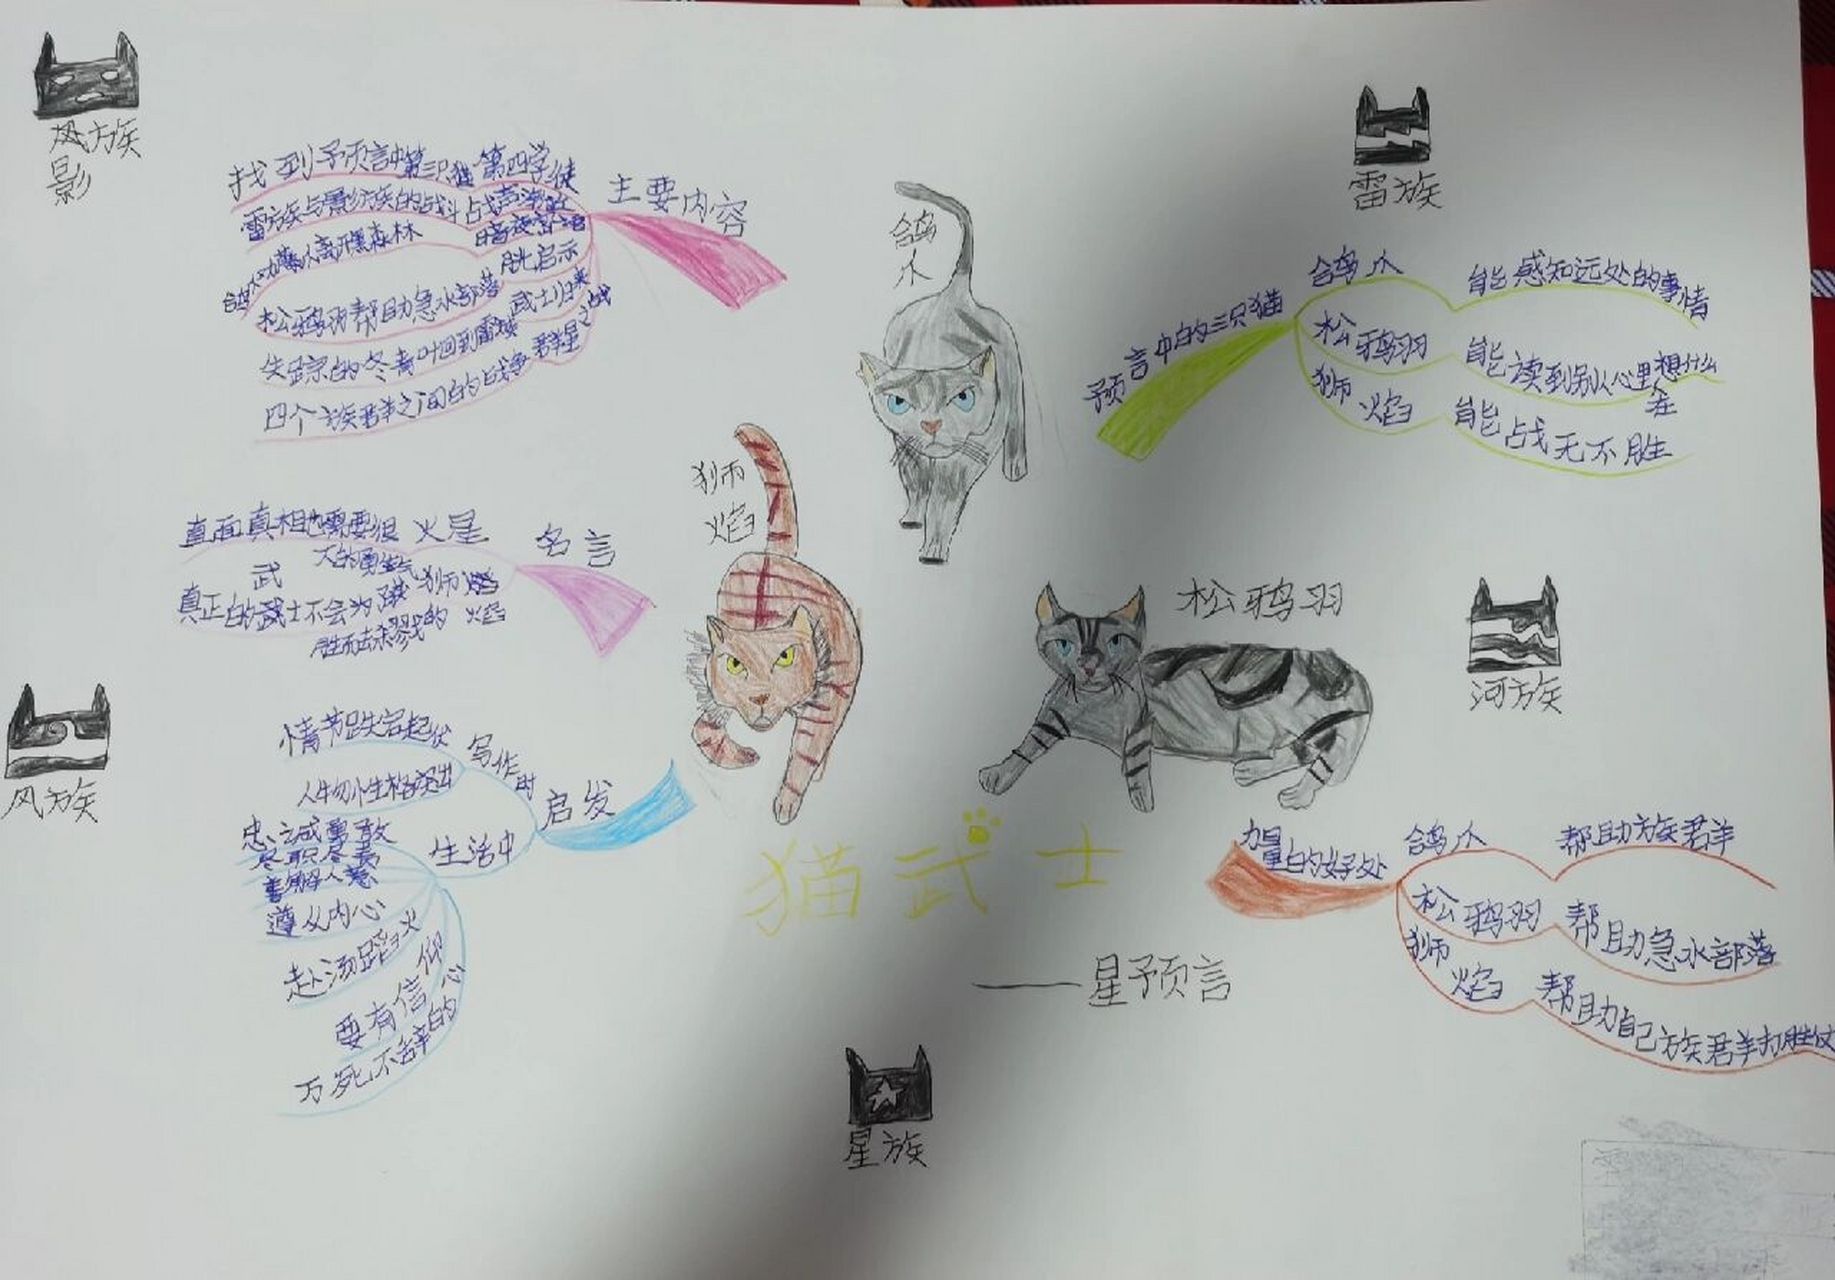 风族
影
找到予预言中第三只猫 第四学徒
雷族与影族的战斗 战声渐近
暗夜密语
鸽爪劝藤从离开黑森林
月光启示
松鸦羽帮助急水部落 武士归来
失踪的冬青叶回到雷族 群星之战
四个族群之间的战争
主要内容
鸽
爪
雷族
预言中的三只猫
鸽爪 能感知远处的事情
松鸦羽 能读到别人心里在想什么
狮焰 能战无不胜
直面真相也需要很大的勇气 火星
武
真正的武士不会为了战胜而去杀戮的 狮焰
名言
狮
焰
松鸦羽
河族
风族
情节跌宕起伏
人物性格突出
写作时
启发
忠诚勇敢
尽职尽责
善解人意
生活中
遵从内心
赴汤蹈火
要有信仰
万死不辞的心
猫武士
——星预言
力量的好处
鸽爪 帮助族群
松鸦羽 帮助急水部落
狮焰 帮助自己族群打胜仗
星族